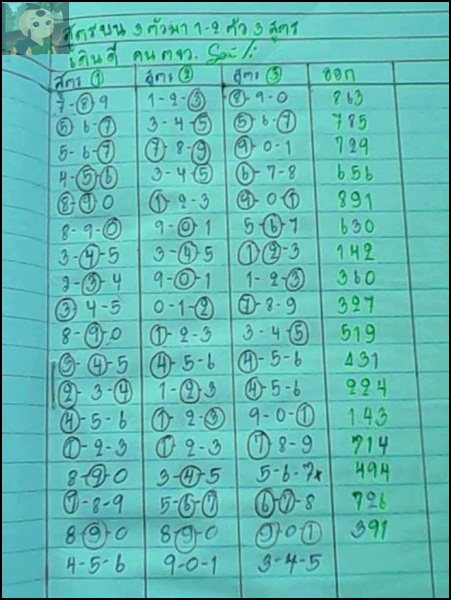 สูตรบน 3 ตัวมา 1-2 ตัว 3 สูตร
เดินดี
สูตร 1 สูตร 2 สูตร 3 ออก
7-8-9 1-2-3 8-9-0 863
5-6-7 3-4-5 5-6-7 785
5-6-7 7-8-9 9-0-1 729
4-5-6 3-4-5 6-7-8 656
8-9-0 1-2-3 9-0-1 891
8-9-0 9-0-1 5-6-7 630
3-4-5 3-4-5 1-2-3 142
2-3-4 9-0-1 1-2-3 360
3-4-5 0-1-2 7-8-9 327
8-9-0 1-2-3 3-4-5 519
3-4-5 4-5-6 4-5-6 431
2-3-4 1-2-3 4-5-6 224
4-5-6 1-2-3 9-0-1 143
1-2-3 1-2-3 7-8-9 714
8-9-0 3-4-5 5-6-7x 494
7-8-9 5-6-7 6-7-8 726
8-9-0 8-9-0 9-0-1 391
4-5-6 9-0-1 3-4-5